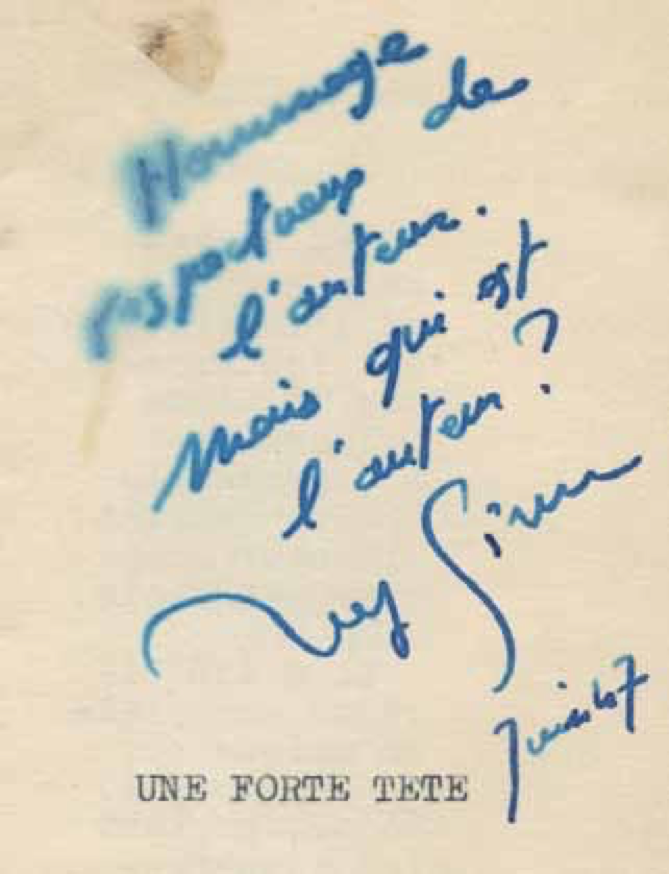 Hommage de
respectueux
l'auteur.
Mais qui est
l'auteur ?
UNE FORTE TETE